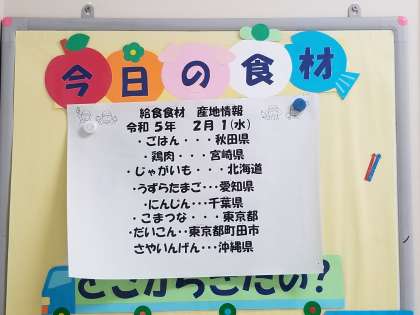 今日の食材
給食食材　産地情報
令和 5年　2月 1(水)
・ごはん・・・秋田県
・鶏肉・・・宮崎県
・じゃがいも・・・・北海道
・うずらたまご・・・愛知県
・にんじん・・・千葉県
・こまつな・・・東京都
・だいこん・・東京都町田市
さやいんげん・・・沖縄県
どこからきたの？